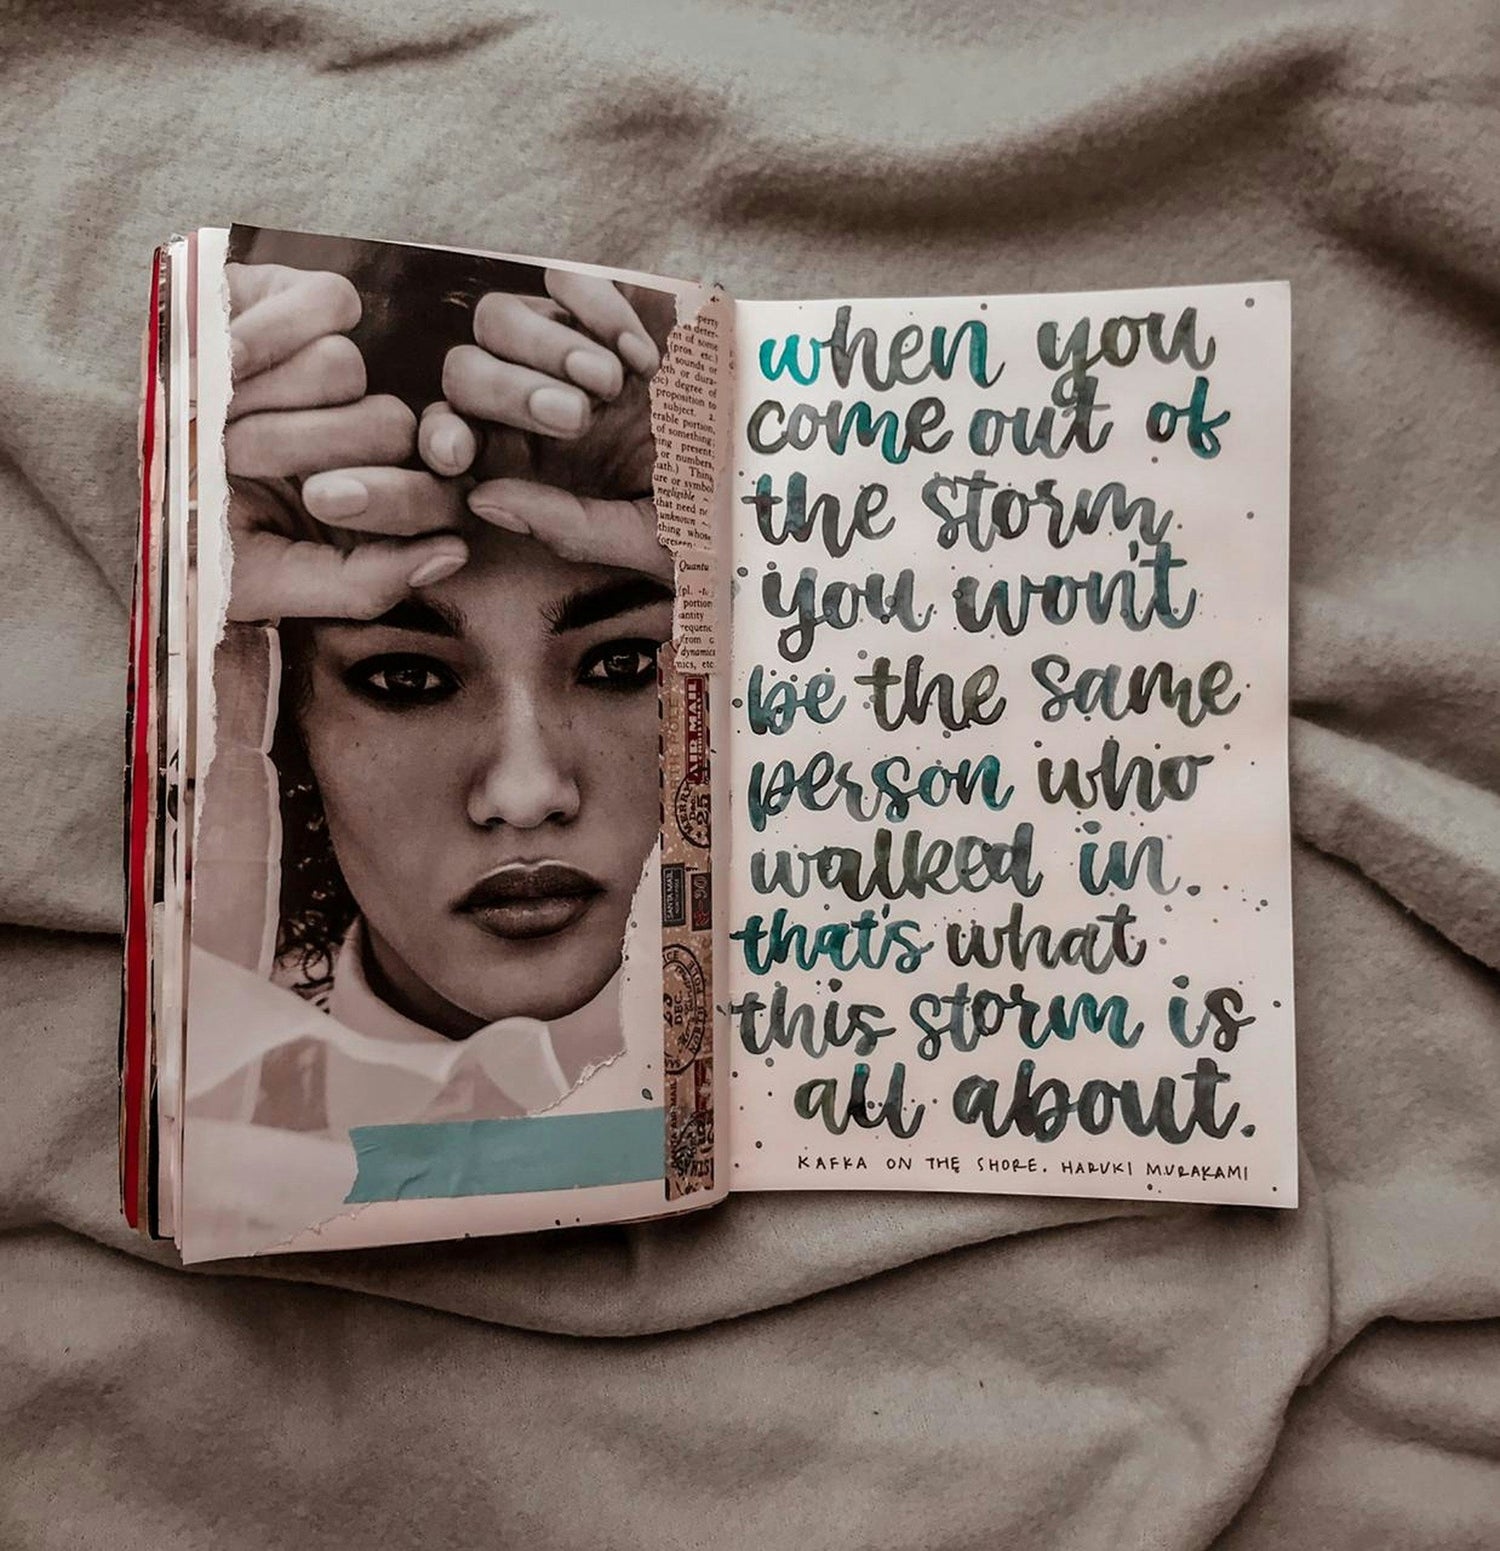 perty
nt of some
(pros. etc.)
sounds or
gth or dura-
degree of
proposition to
subject. 2.
erable portion,
of something;
ing present;
or numbers,
ath.) Thing
ure or symbol
negligible
that need
unknown
thing whos
Quantu
(pl. -ti-
portion
antity
requenc
from
dynamics
nics, etc
AIR MAIL
Dec.
25
SANTA MAIL
DEC.
when you
come out of
the storm
you won't
be the same
person who
walked in.
that's what
this storm is
all about.
KAFKA ON THE SHORE. HARUKI MURAKAMI